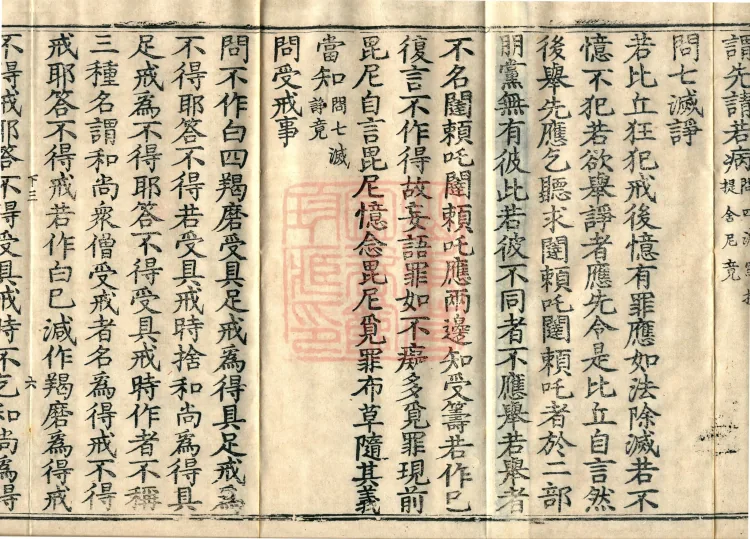 謂先請若病
提舍尼竟
問七滅諍
若比丘狂犯戒後憶有罪應如法除滅若不
憶不犯若欲舉諍者應先令是比丘自言然
後舉先應乞聽求闥頼吒闥頼吒者於二部
朋黨無有彼此若彼不同者不應舉若舉者
不名闥頼吒闥頼吒應兩邊知受籌若作已
復言不作得故妄語罪如不癡多覓罪現前
毘尼自言毘尼憶念毘尼覓罪布草隨其義
當知問七滅諍竟
問受戒事
問不作白四羯磨受具足戒為得具足戒為
不得耶答不得若受具戒時捨和尚為得具
足戒為不得耶答不得受具戒時作者不稱
三種名謂和尚眾僧受戒者名為得戒不得
戒耶答不得戒若作白已減作羯磨為得戒
下三 六
不得戒耶答不得受具戒時不乞和尚為得